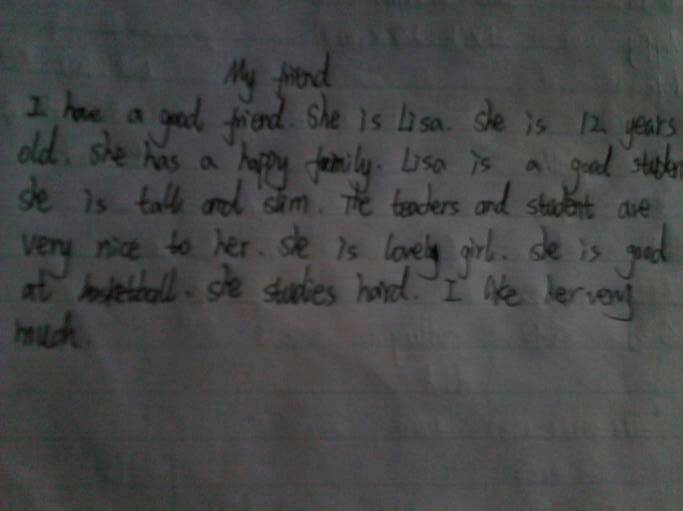 My friend
I have a good friend. She is Lisa. she is 12 years
old. she has a happy family. Lisa is a good studen
she is tall and slim. The teachers and student are
very nice to her. she is lovely girl. she is good
at basketball. she studies hard. I like her very
much.